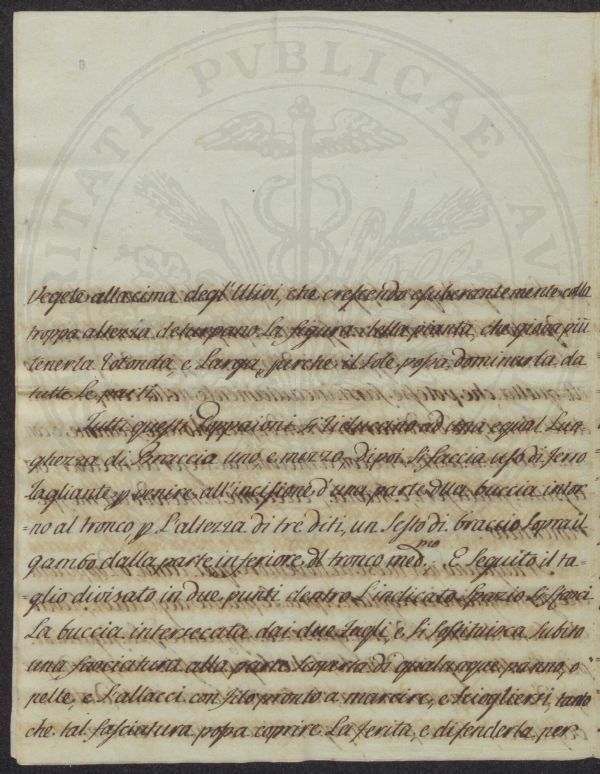 RITATI PVBLICAE AV
vegete alla cima degl'Ulivi, che crescendo esuberantemente colla
troppa altezza deturpano la figura della pianta, che giova più
tenerla rotonda, e larga, perche il sole possa dominarla da
tutte le parti.
Tutti questi si riducano ad una equal Lun-
ghezza di Braccia uno e mezzo. Dipoi si faccia uso di ferro
Tagliante p venire all'incisione d'una parte della buccia intor-
=no al tronco p l'altezza di trè diti, un sesto di braccio sopra il
gambo dalla parte inferiore del tronco med.mo E seguito il ta-
=glio divisato in due punti dentro l'indicato spazio si stacci
La buccia intersecata dai due Tagli, e si sostituisca subito
una fasciatura alla parte scoperta di qualunque panno, o
pelle, e s'allacci con filo pronto a marcire, e sciogliersi, tanto
che tal fasciatura possa coprire La ferita, e difenderla per-